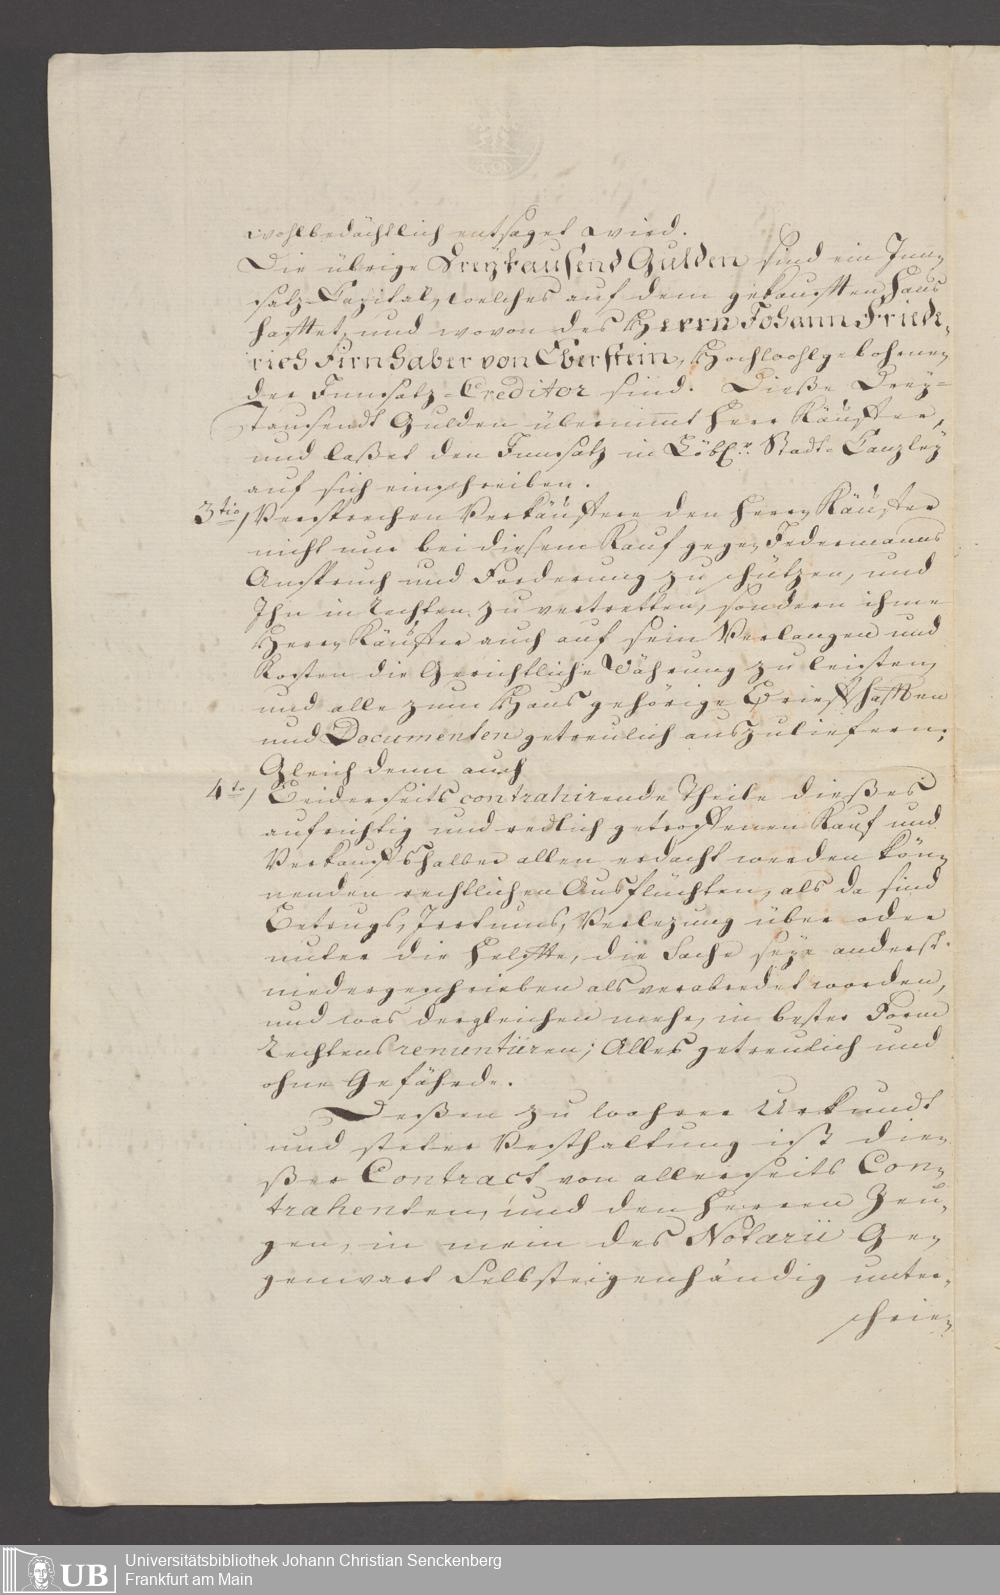 wohlbedächtlich entsaget wird.
Die übrige Dreytausend Gulden sind ein Inn-
satz-Capital, welches auf dem gekaufften Haus
hafftet, und wovon des Herrn Johann Friede-
rich Firnhaber von Eberstein, Hochwohlgebohrnen
der Innsatz-Creditor sind. Dieße Drey-
tausendt Gulden übernimmt Herr Käuffer,
und laßet den Innsatz in Löbl.r Stadt-Canzley
auf sich einschreiben.
3tio, Versprechen Verkäuffere den Herrn Käuffer
nicht nur bei diesem Kauf gegen Jedermanns
Anspruch und Forderung zu schützen, und
Ihn in Rechten zu vertretten, sondern ihme
Herrn Käuffer auch auf sein Verlangen und
Kosten die Gerichtliche Währung zu leisten,
und alle zum Haus gehörige Briefschafften
und Documenten getreulich auszuliefern;
Gleich denn auch
4to, Beiderseits contrahirende Theile dießes
aufrichtig und redlich getroffenen Kauf und
Verkauffshalber allen erdacht werden kön-
nenden rechtlichen Ausflüchten, als da sind
Betrugs, Irrtums, Verlezung über oder
unter die Helffte, die Sache seye anderst
niedergeschrieben als verabredet worden,
und was dergleichen mehr, in bester Form
Rechtens renuntiiren; Alles getreulich und
ohne Gefährde.
Deßen zu wahrer Urkundt
und steter Vesthaltung ist die-
ßer Contract von allerseits Con-
trahenten, und den Herren Zeu-
gen, in mein des Notarii Ge-
genwart Selbsteigenhändig unter-
schrie-
Universitätsbibliothek Johann Christian Senckenberg
Frankfurt am Main
UB